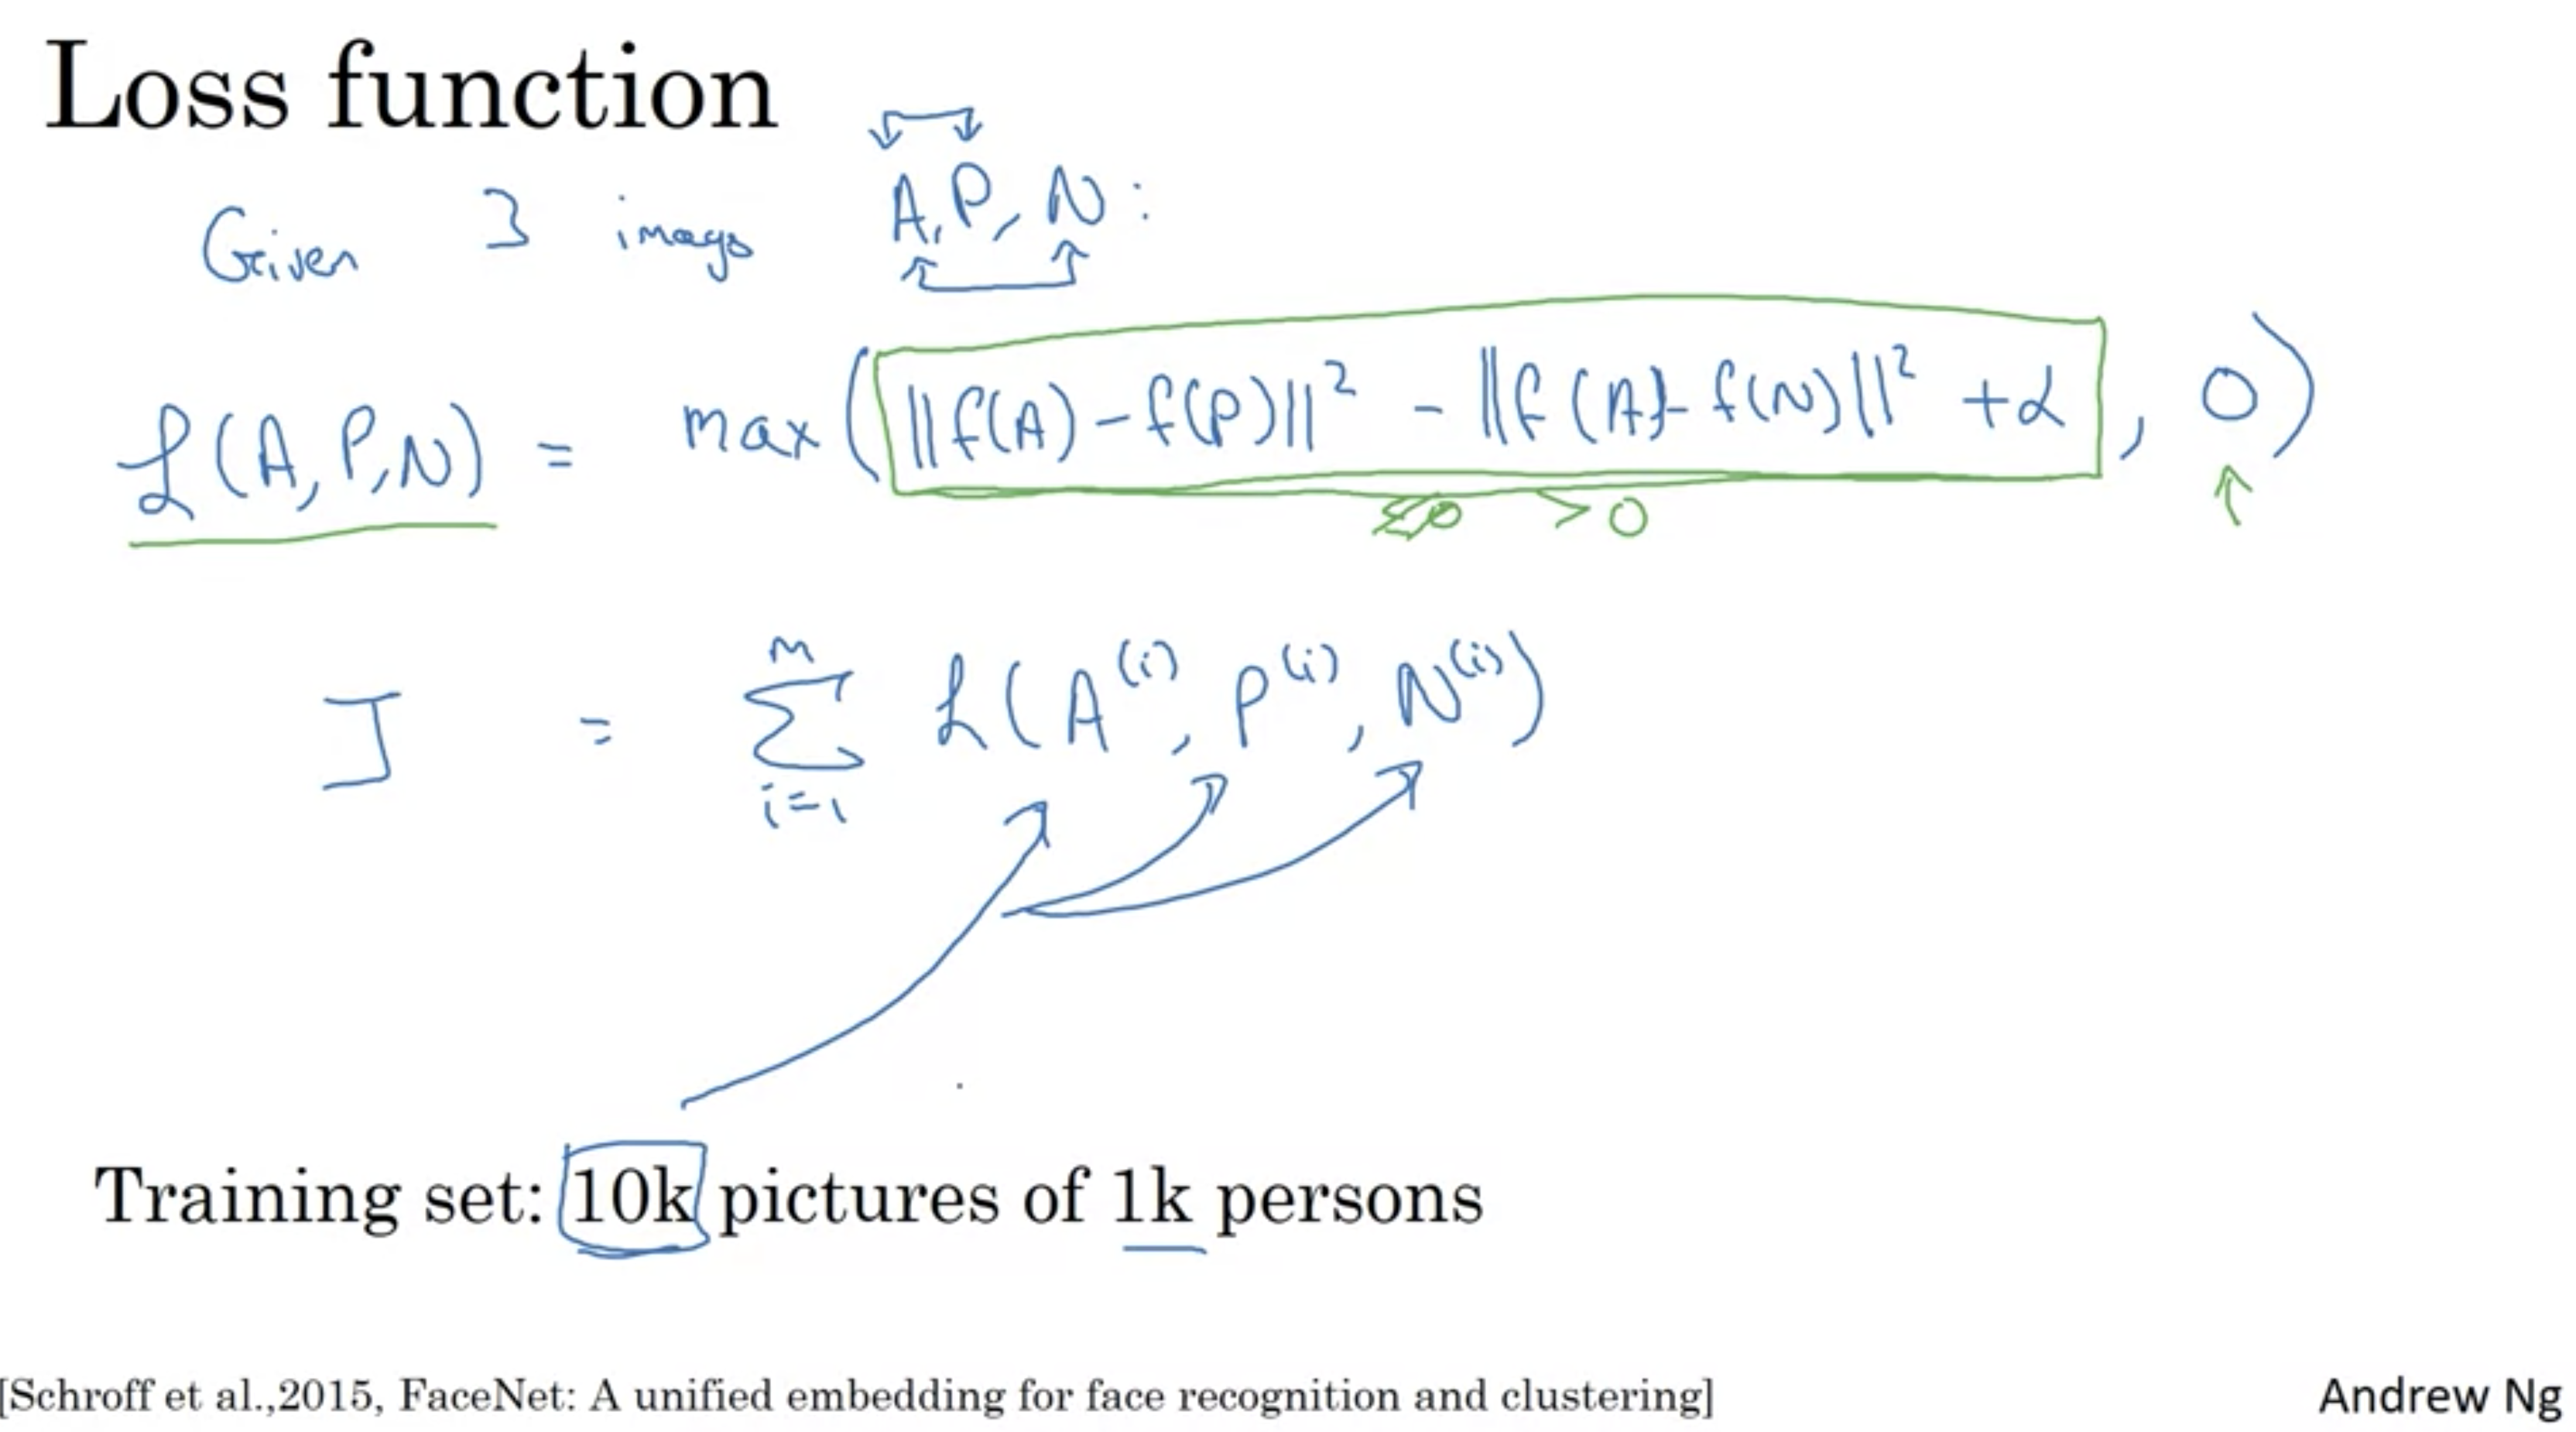 Loss function
Given 3 images A, P, N:
ℒ(A,P,N) = max(||f(A)-f(P)||² - ||f(A)-f(N)||² +α, 0)
≤0 >0
M
J = Σ ℒ(A⁽ⁱ⁾, P⁽ⁱ⁾, N⁽ⁱ⁾)
i=1
Training set: 10k pictures of 1k persons
[Schroff et al.,2015, FaceNet: A unified embedding for face recognition and clustering]
Andrew Ng